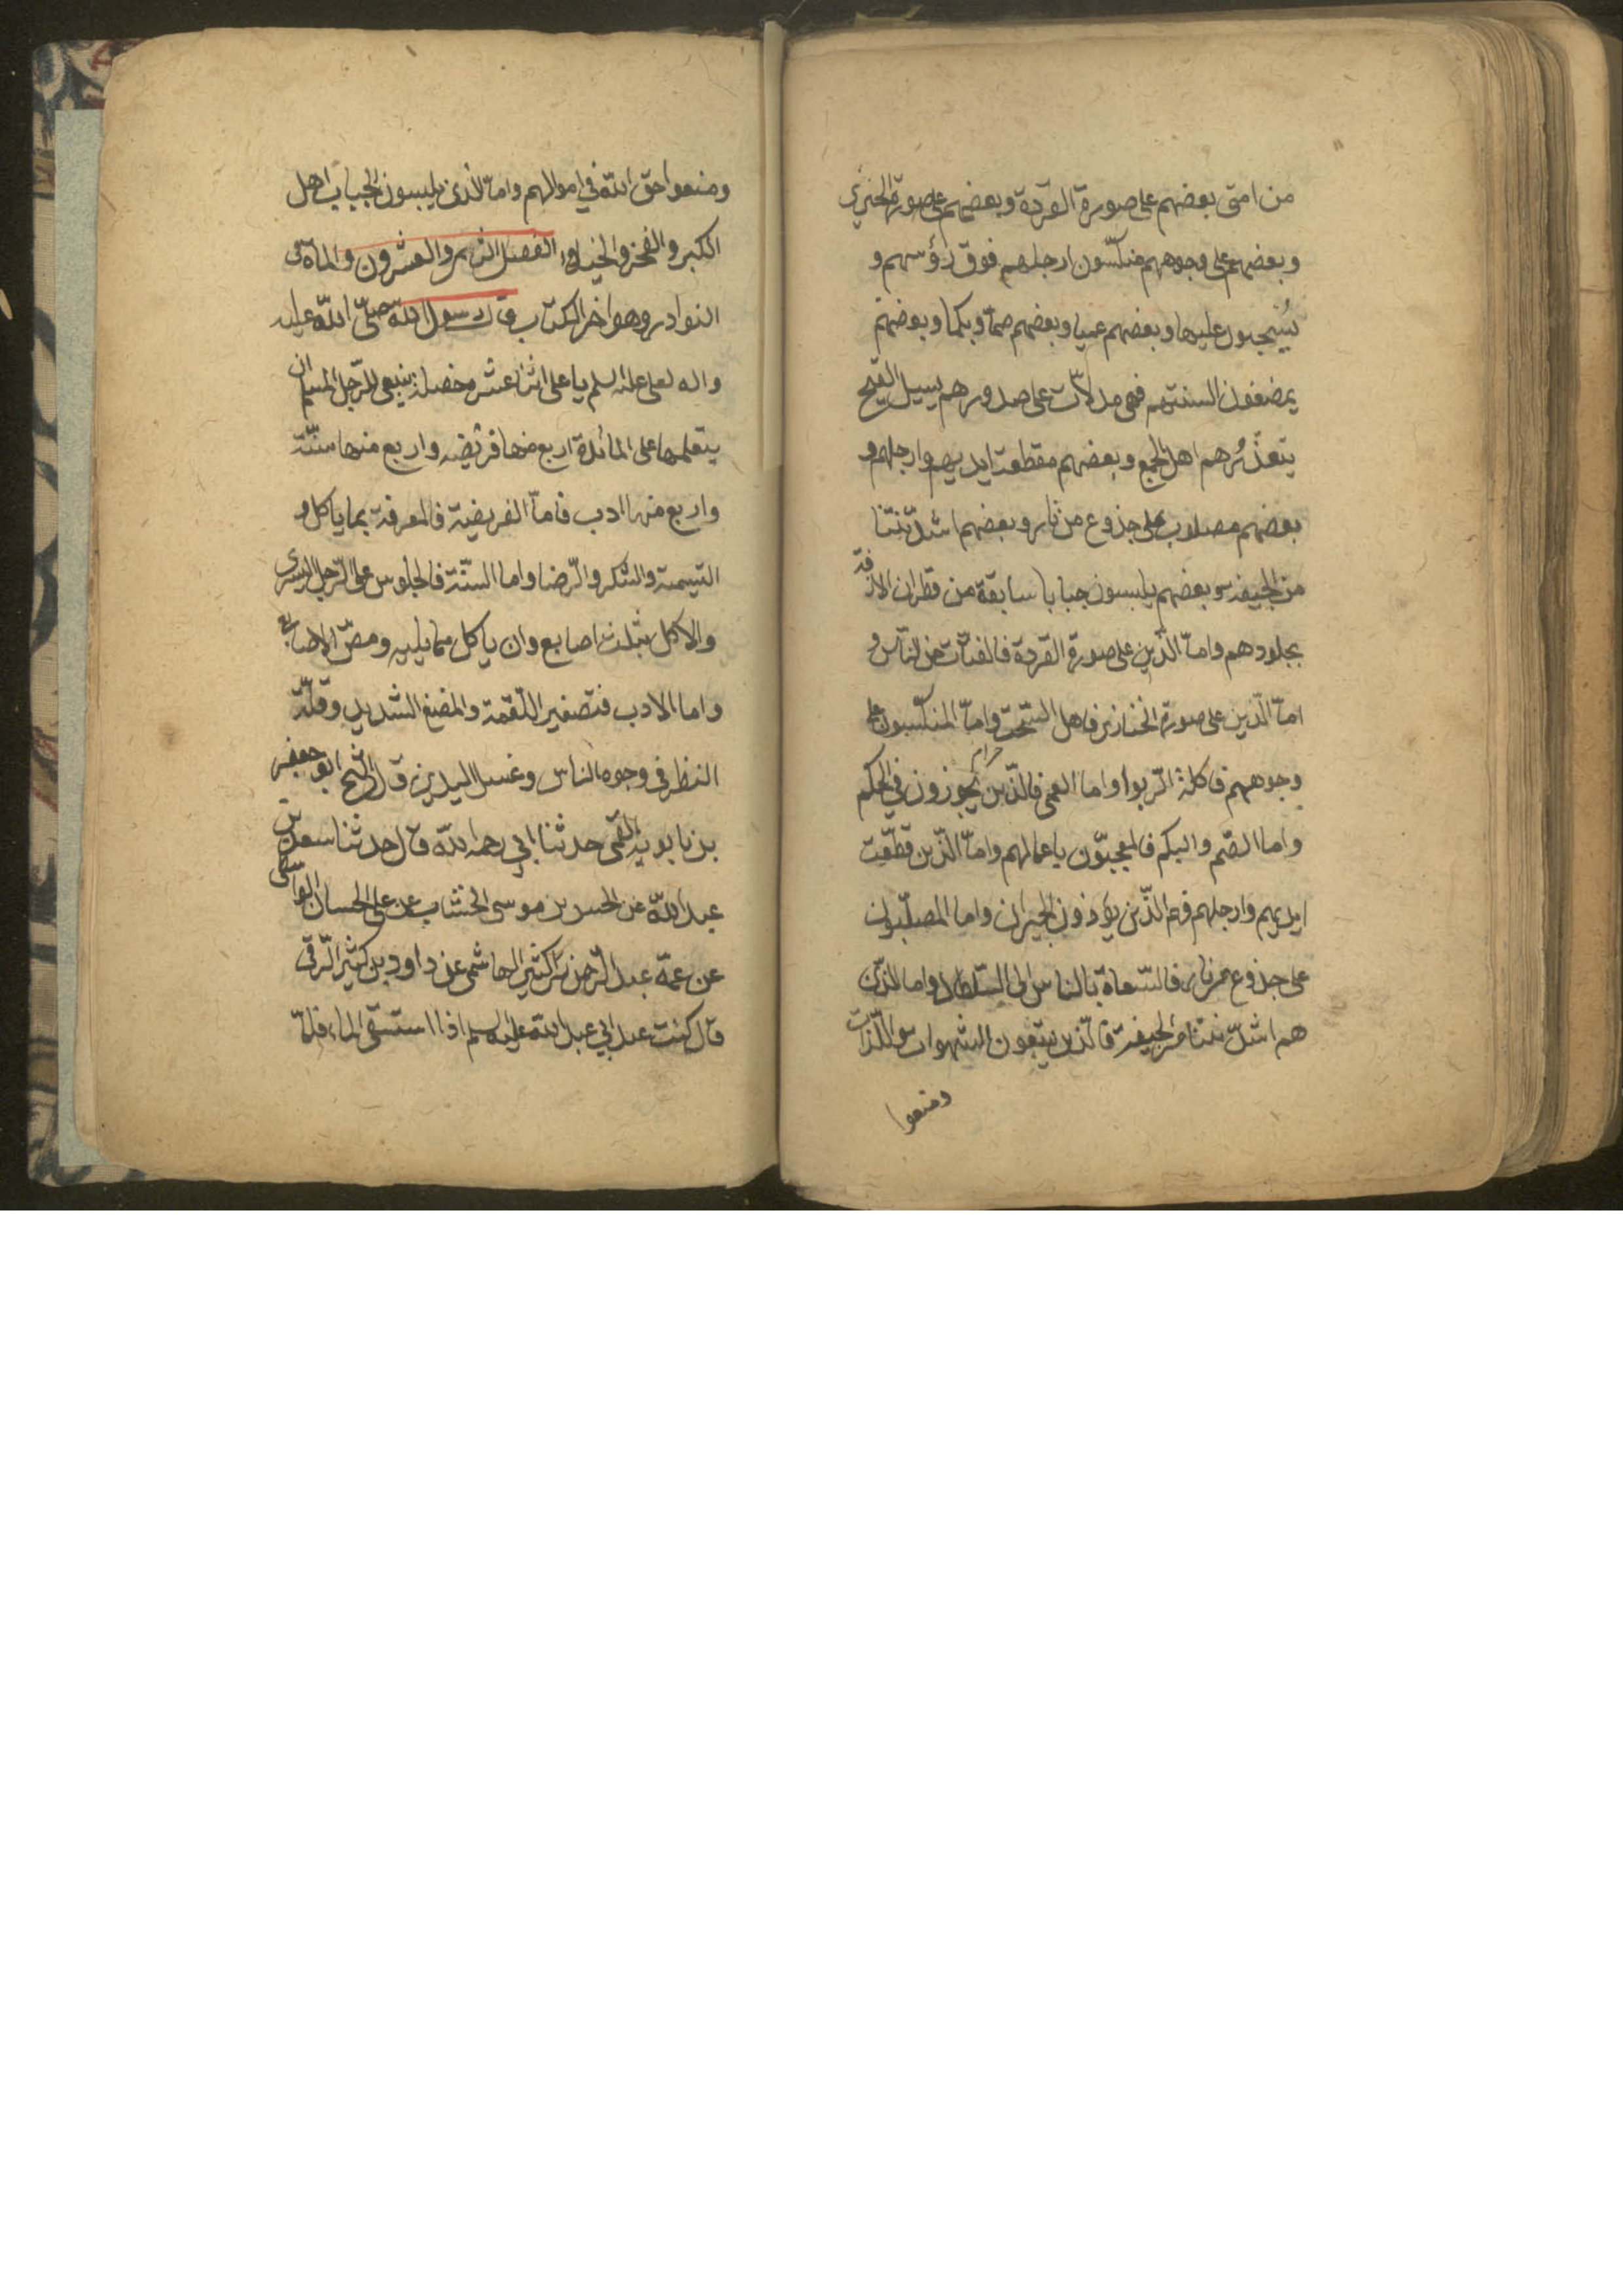 من امتى بعضهم على صورة القردة و بعضهم على صورة الخنزير
و بعضهم على وجوههم منكسون ارجلهم فوق رؤسهم و
يُسْحبون عليها و بعضهم عميا و بعضهم صما و بكما و بعضهم
يمضغون السنتهم فهى مدلات على صدورهم يسيل القيح
يتقذّرُهم اهل الجمع و بعضهم مقطعة ايديهم و ارجلهم و
بعضهم مصلوب على جذوع من نار و بعضهم اشدّ نتنا
من الجيفة و بعضهم يلبسون جبابا سابقة من قطران لازقة
بجلودهم و امّا الّذين على صورة القردة فالقتات من النّاس و
امّا الّذين على صورة الخنازير فاهل السّحت و امّا المنكّسون على
وجوههم فاكلة الرّبوا و اما العمى فالّذين يجوزون فى الحكم
و اما الصّم و البكم فالمعجبّون باعمالهم و امّا الّذين قطّعت
ايديهم و ارجلهم فهم الّذين يؤذون الجيران و اما المصلّبون
على جذوع من نار فالسّعاة بالناس الى السّلطان و اما الّذين
هم اشدّ نتنا من الجيفة فالّذين يتبعون الشهوات و اللّذات
و منعوا
و منعوا حق الله فى اموالهم و امّا الّذى يلبسون الجباب اهل
الكبر و الفخر و الخيلاء الفصل الثامن و العشرون و المأة فى
النوادر و هو اخر الكتاب قال رسول الله صلّى الله عليه
و اله لعلى عليه السلم يا على اثنا عشر خصلة ينبغى للرّجل المسلم ان
يتعلمها على المائدة اربع منها فريضه و اربع منها سنّة
و اربع منها ادب فامّا الفريضة فالمعرفة بما ياكل و
التسمية و الشكر و الرّضا و اما السّنّة فالجلوس على الرّجل اليسرى
و الاكل بثلث اصابع و ان ياكل مما يليه و مصّ الاصابع
و اما الادب فتصغير اللّقمة و المضغ الشديد و قلّة
النظر فى وجوه الناس و غسل اليدين قال الشّيخ ابو جعفر
بن بابويه القمى حدثنا ابى رحمه الله قال حدثنا سعد بن
عبد الله عن الحسن بن موسى الخشاب عن على الحسان الواسطى
عن عمّه عبد الرّحمن بن كثير الهاشمى عن داود بن كثير الرّقى
قال كنت عند ابى عبد الله عليه السلم اذا استسقى الماء فلمّا